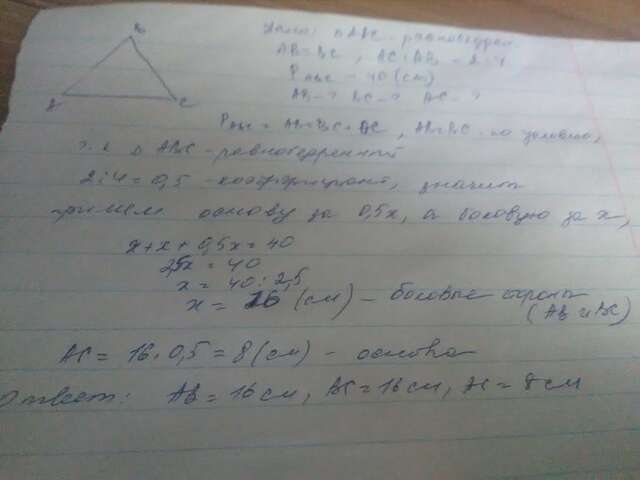 B
A
C
Дано: △ ABC - равнобедрен
AB = BC, AC : AB = 2 : 4
P ABC = 40 (см)
AB - ? BC - ? AC - ?
P ABC = AB + BC + AC, AB = BC - по условию,
т.к △ ABC - равнобедренный
2 : 4 = 0,5 - коэффициент, значит
примем основу за 0,5x, а боковую за x,
x + x + 0,5x = 40
2,5x = 40
x = 40 : 2,5
x = 16 (см) - боковые стороны
(AB и BC)
AC = 16 · 0,5 = 8 (см) - основа
Ответ: AB = 16 см, BC = 16 см, AC = 8 см